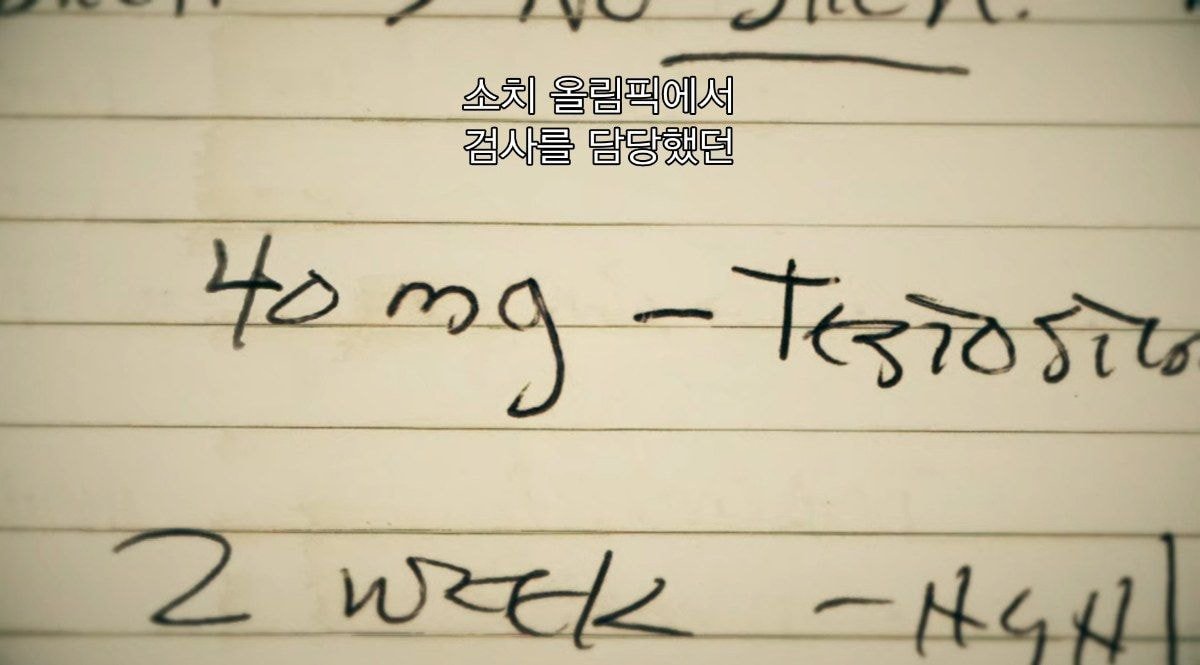 No
소치 올림픽에서
검사를 담당했던
40 mg - Testost
2 WEEK - HGH